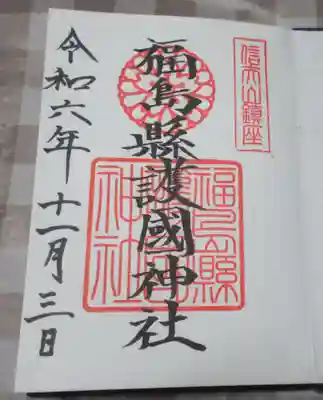 信夫山鎮座
福島縣護國神社
福島縣護國神社
令和六年十一月三日